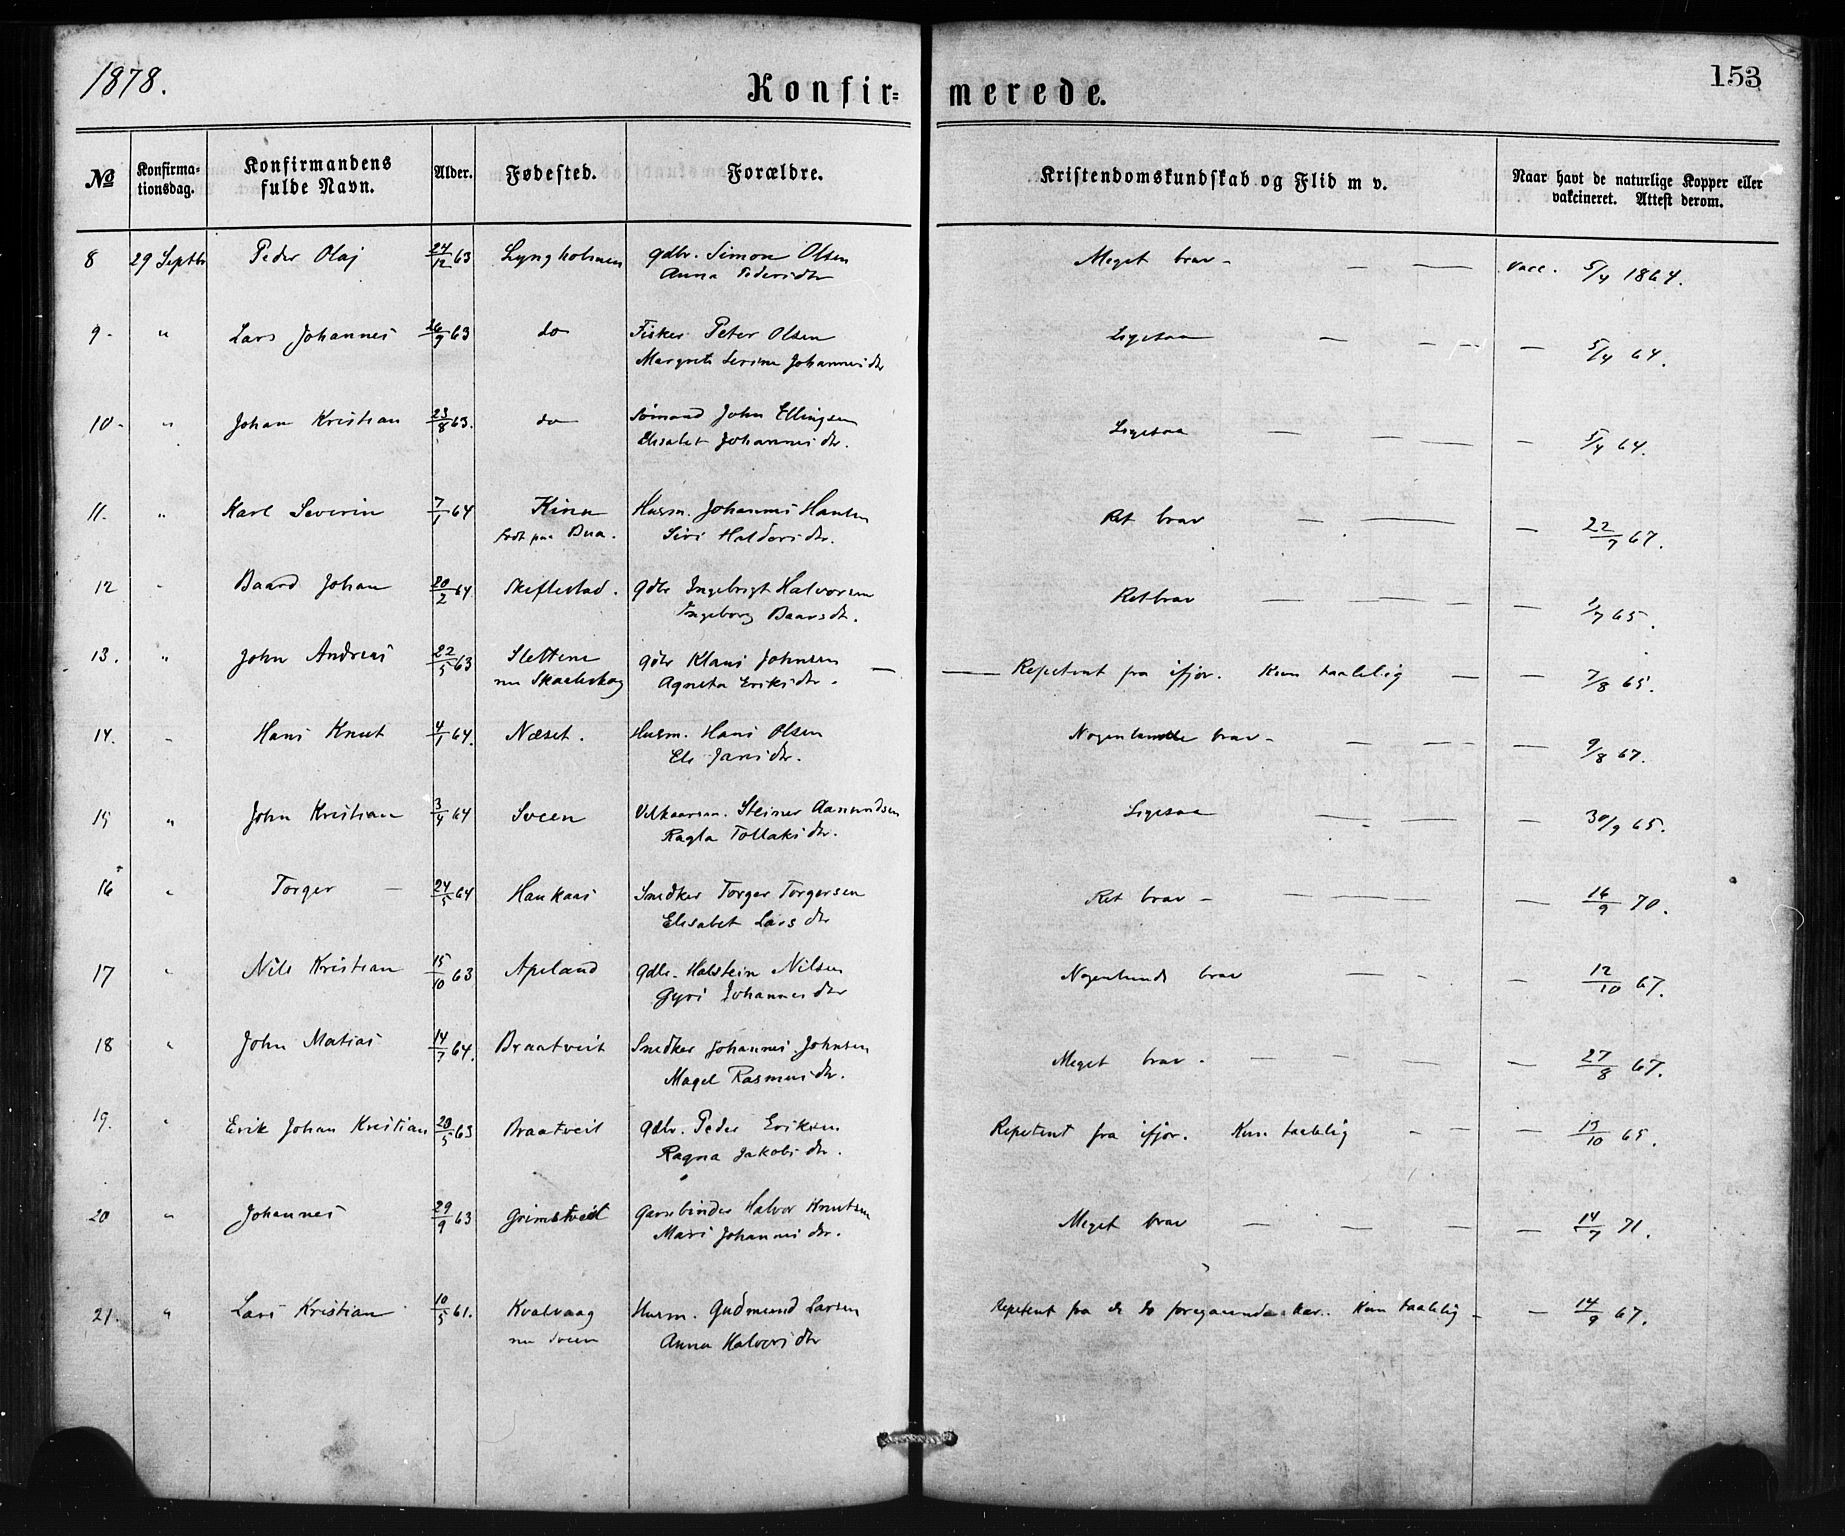 1878.
Konfirmerede.
153
№ Konfirmationsdag. Konfirmandens fulde Navn. Alder. Fødested. Forældre. Kristendomskundskab og Flid m v. Naar havt de naturlige Kopper eller vakcineret. Attest derom.
8 29 Septbr Peder Olaj 24/12 63 Lyngholmen gdbr. Simon Olsen Meget brav - — — vacc. 5/4 1864.
Anna Pedersdtr
9- " Lars Johannes 26/9 63 do Fisker Peter Olsen Ligesaa — — — 5/4 64.
Margrete Serine Johannesdtr
10- " Johan Kristian 23/8 63. do Sømand John Ellingsen Ligesaa — — — — 5/4 64.
Elisabet Johannesdtr.
11. " Karl Severin 7/1 64 Kina Husm. Johannes Hansen Ret brav — — — 22/7 67.
født paa Bua. Siri Haldorsdtr.
12 " Baard Johan 20/2 64 Skeflestad. gdbr Ingebrigt Halvorsen Ret brav — — — — 1/7 65.
Ingeborg Baarsdt.
13. " John Andreas 22/5 63 Slettene gdbr Klaus Johnsen — — Repetent fra ifjor. Kun taalelig — — 7/8 65.
nu Skaaleskog Agneta Eriksdtr.
14. " Hans Knut 4/1 64. Næset. Husm. Hans Olsen Nogenlunde brav - — — — 9/8 67.
Eli Jansdtr.
15 " John Kristian 3/4 64 Sveen Vilkaarsm. Steiner Aamundsen Ligesaa — — — 30/9 65.
Ragla Tollaksdtr.
16 " Torger — 24/5 64 Haukaas Snedker Torger Torgersen Ret brav - — — — 16/9 70.
Elisabet Larsdtr
17 " Nils Kristian 15/10 63 Apeland gdbr. Halstein Nilsen Nogenlunde brav — - — 12/10 67.
Gyri Johannesdtr
18 " John Matias 14/7 64. Braatveit Snedker Johannes Johnsen Meget brav. — — — — 27/8 67.
Magel Rasmusdtr.
19. " Erik Johan Kristian 20/5 63 Braatveit gdbr. Peder Eriksen Repetent fra ifjor. Kun taalelig - — — 13/10 65.
Ragna Jakobsdtr.
20 " Johannes 29/9 63 Grimstveit Garnbinder Halvor Knutsen Meget brav — — — — 14/7 71.
Mari Johannesdtr.
21. " Lars Kristian 10/5 61. Kvalvaag Husm. Gudmund Larsen Repetent fra de to foregaaende Aar. Kun taalelig - — 14/9 67.
nu Sveen Anna Halvorsdtr